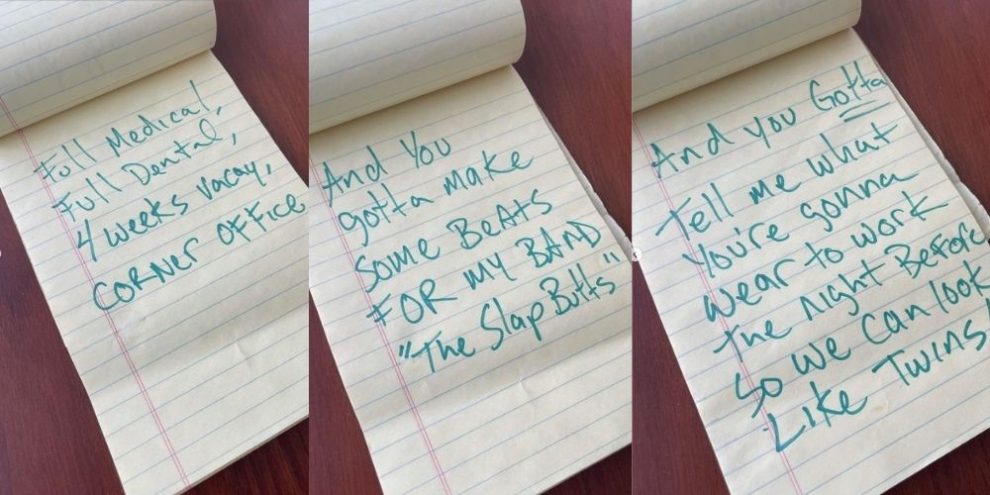 Full Medical,
Full Dental,
4 weeks vacay,
CORNER OFFICE
And You
gotta make
some BeATS
FOR MY BAND
"The Slap Butts"
And you Gotta
Tell me what
You're gonna
wear to work
the night Before
so we can look
Like Twins!